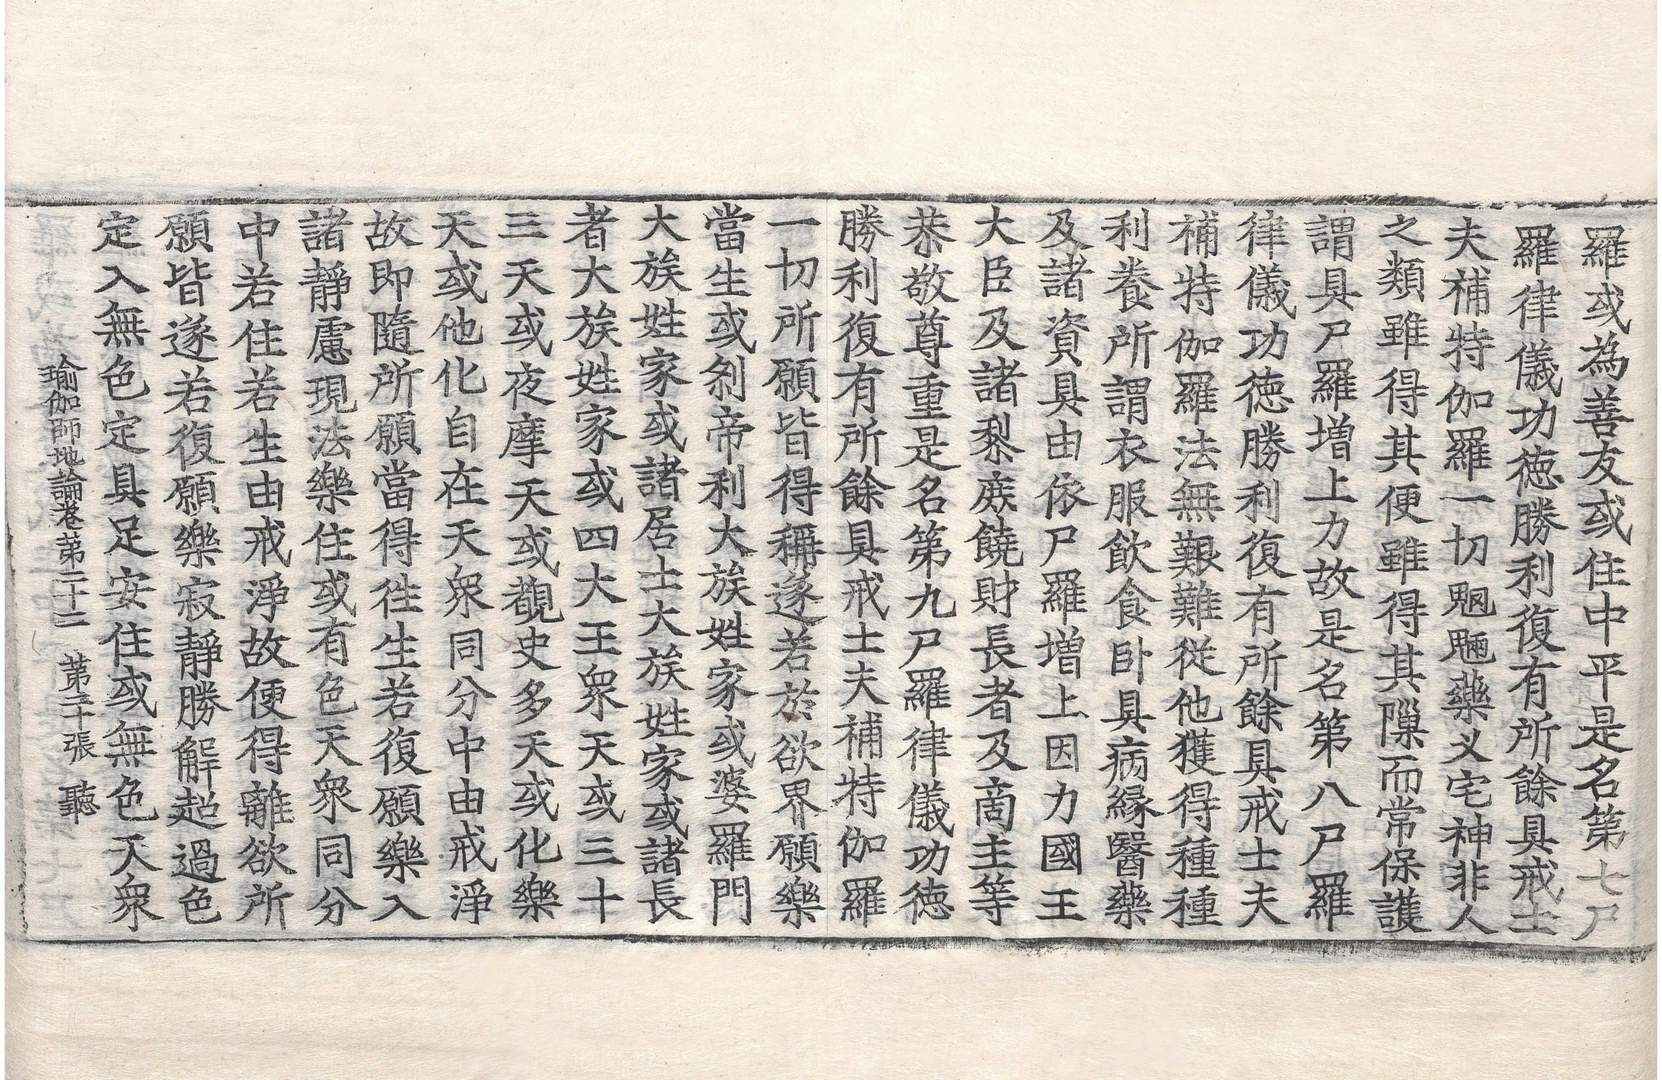 羅或為善友或住中平是名第七尸
羅律儀功德勝利復有所餘具戒士
夫補特伽羅一切魍魎藥叉宅神非人
之類雖得其便雖得其隟而常保護
謂具尸羅增上力故是名第八尸羅
律儀功德勝利復有所餘具戒士夫
補特伽羅法無艱難從他獲得種種
利養所謂衣服飲食卧具病緣醫藥
及諸資具由依尸羅增上因力國王
大臣及諸黎庻饒財長者及啇主等
恭敬尊重是名第九尸羅律儀功德
勝利復有所餘具戒士夫補特伽羅
一切所願皆得稱遂若於欲界願樂
當生或刹帝利大族姓家或婆羅門
大族姓家或諸居士大族姓家或諸長
者大族姓家或四大王衆天或三十
三天或夜摩天或覩史多天或化樂
天或他化自在天衆同分中由戒淨
故即隨所願當得徃生若復願樂入
諸靜慮現法樂住或有色天衆同分
中若住若生由戒淨故便得離欲所
願皆遂若復願樂寂靜勝解超過色
定入無色定具足安住或無色天衆
瑜伽師地論卷第二十二　第三十張　聽